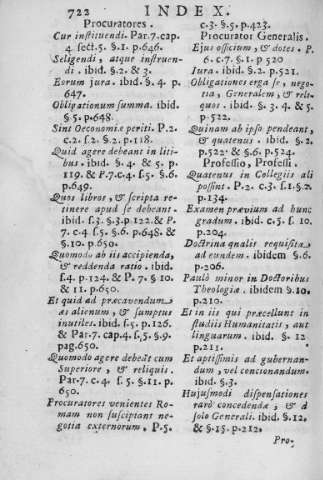 722 INDEX.
Procuratores.
Cur instituendi. Par.7.cap.
4. sect.5. §.1. p.646.
Seligendi, atque instruen-
di. ibid. §.2. & 3.
Eorum jura. ibid. §. 4. p.
647.
Obligationum summa. ibid.
§ 5. p.648.
Sint Oeconomiæ periti. P.2.
c.2. s.2. §.2. p.118.
Quid agere debeant in liti-
bus. ibid. §.4. & 5. p.
119. & P.7.c.4. s.5. §.6.
p.649.
Quos libros, & scripta re-
tinere apud se debeant.
ibid. s.3. §.3.p.122.& P.
7. c.4 s.5. §.6. p.648. &
§.10. p.650.
Quomodo ab iis accipienda,
& reddenda ratio. ibid.
s.4. p.124. & P. 7. §. 10.
& 11. p.650.
Et quid ad præcavendum
æs alienum, & sumptus
inutiles. ibid. s.5. p.126.
& Par.7. cap.4. s.5. §.9.
pag.650.
Quomodo agere debeāt cum
Superiore, & reliquis.
Par.7. c.4. s.5. §.11. p.
650.
Procuratores venientes Ro-
mam non suscipiant ne-
gotia externorum. P.5.
c.3. §.5. p.423.
Procurator Generalis.
Ejus officium, & dotes. P.
6. c.7. §.1. p 520
Jura. ibid. §.2. p.521.
Obligationes erga se, nego-
tia, Generalem, & reli-
quos. ibid. §. 3. 4. & 5.
p.522.
Quinam ab ipso pendeant,
& quatenus. ibid. §.2.
p.522. & §.6. p.524.
Professio, Professi.
Quatenus in Collegiis ali
possint. P.2. c.3. s.1.§.2.
p.134.
Examen prævium ad hunc
gradum. ibid. c.5. s. 10.
p.204.
Doctrina qualis requisita
ad eundem. ibidem §.6.
p.206.
Paulò minor in Doctoribus
Theologiæ. ibidem §.10.
p.210.
Et in iis qui præcellunt in
studiis Humanitatis, aut
linguarum. ibid. §. 12
p.211.
Et aptissimis ad gubernan-
dum, vel concionandum.
ibid. §.3.
Hujusmodi dispensationes
rarò concedendæ, & à
solo Generali. ibid. §.12.
& §.15. p.212.
Pro-